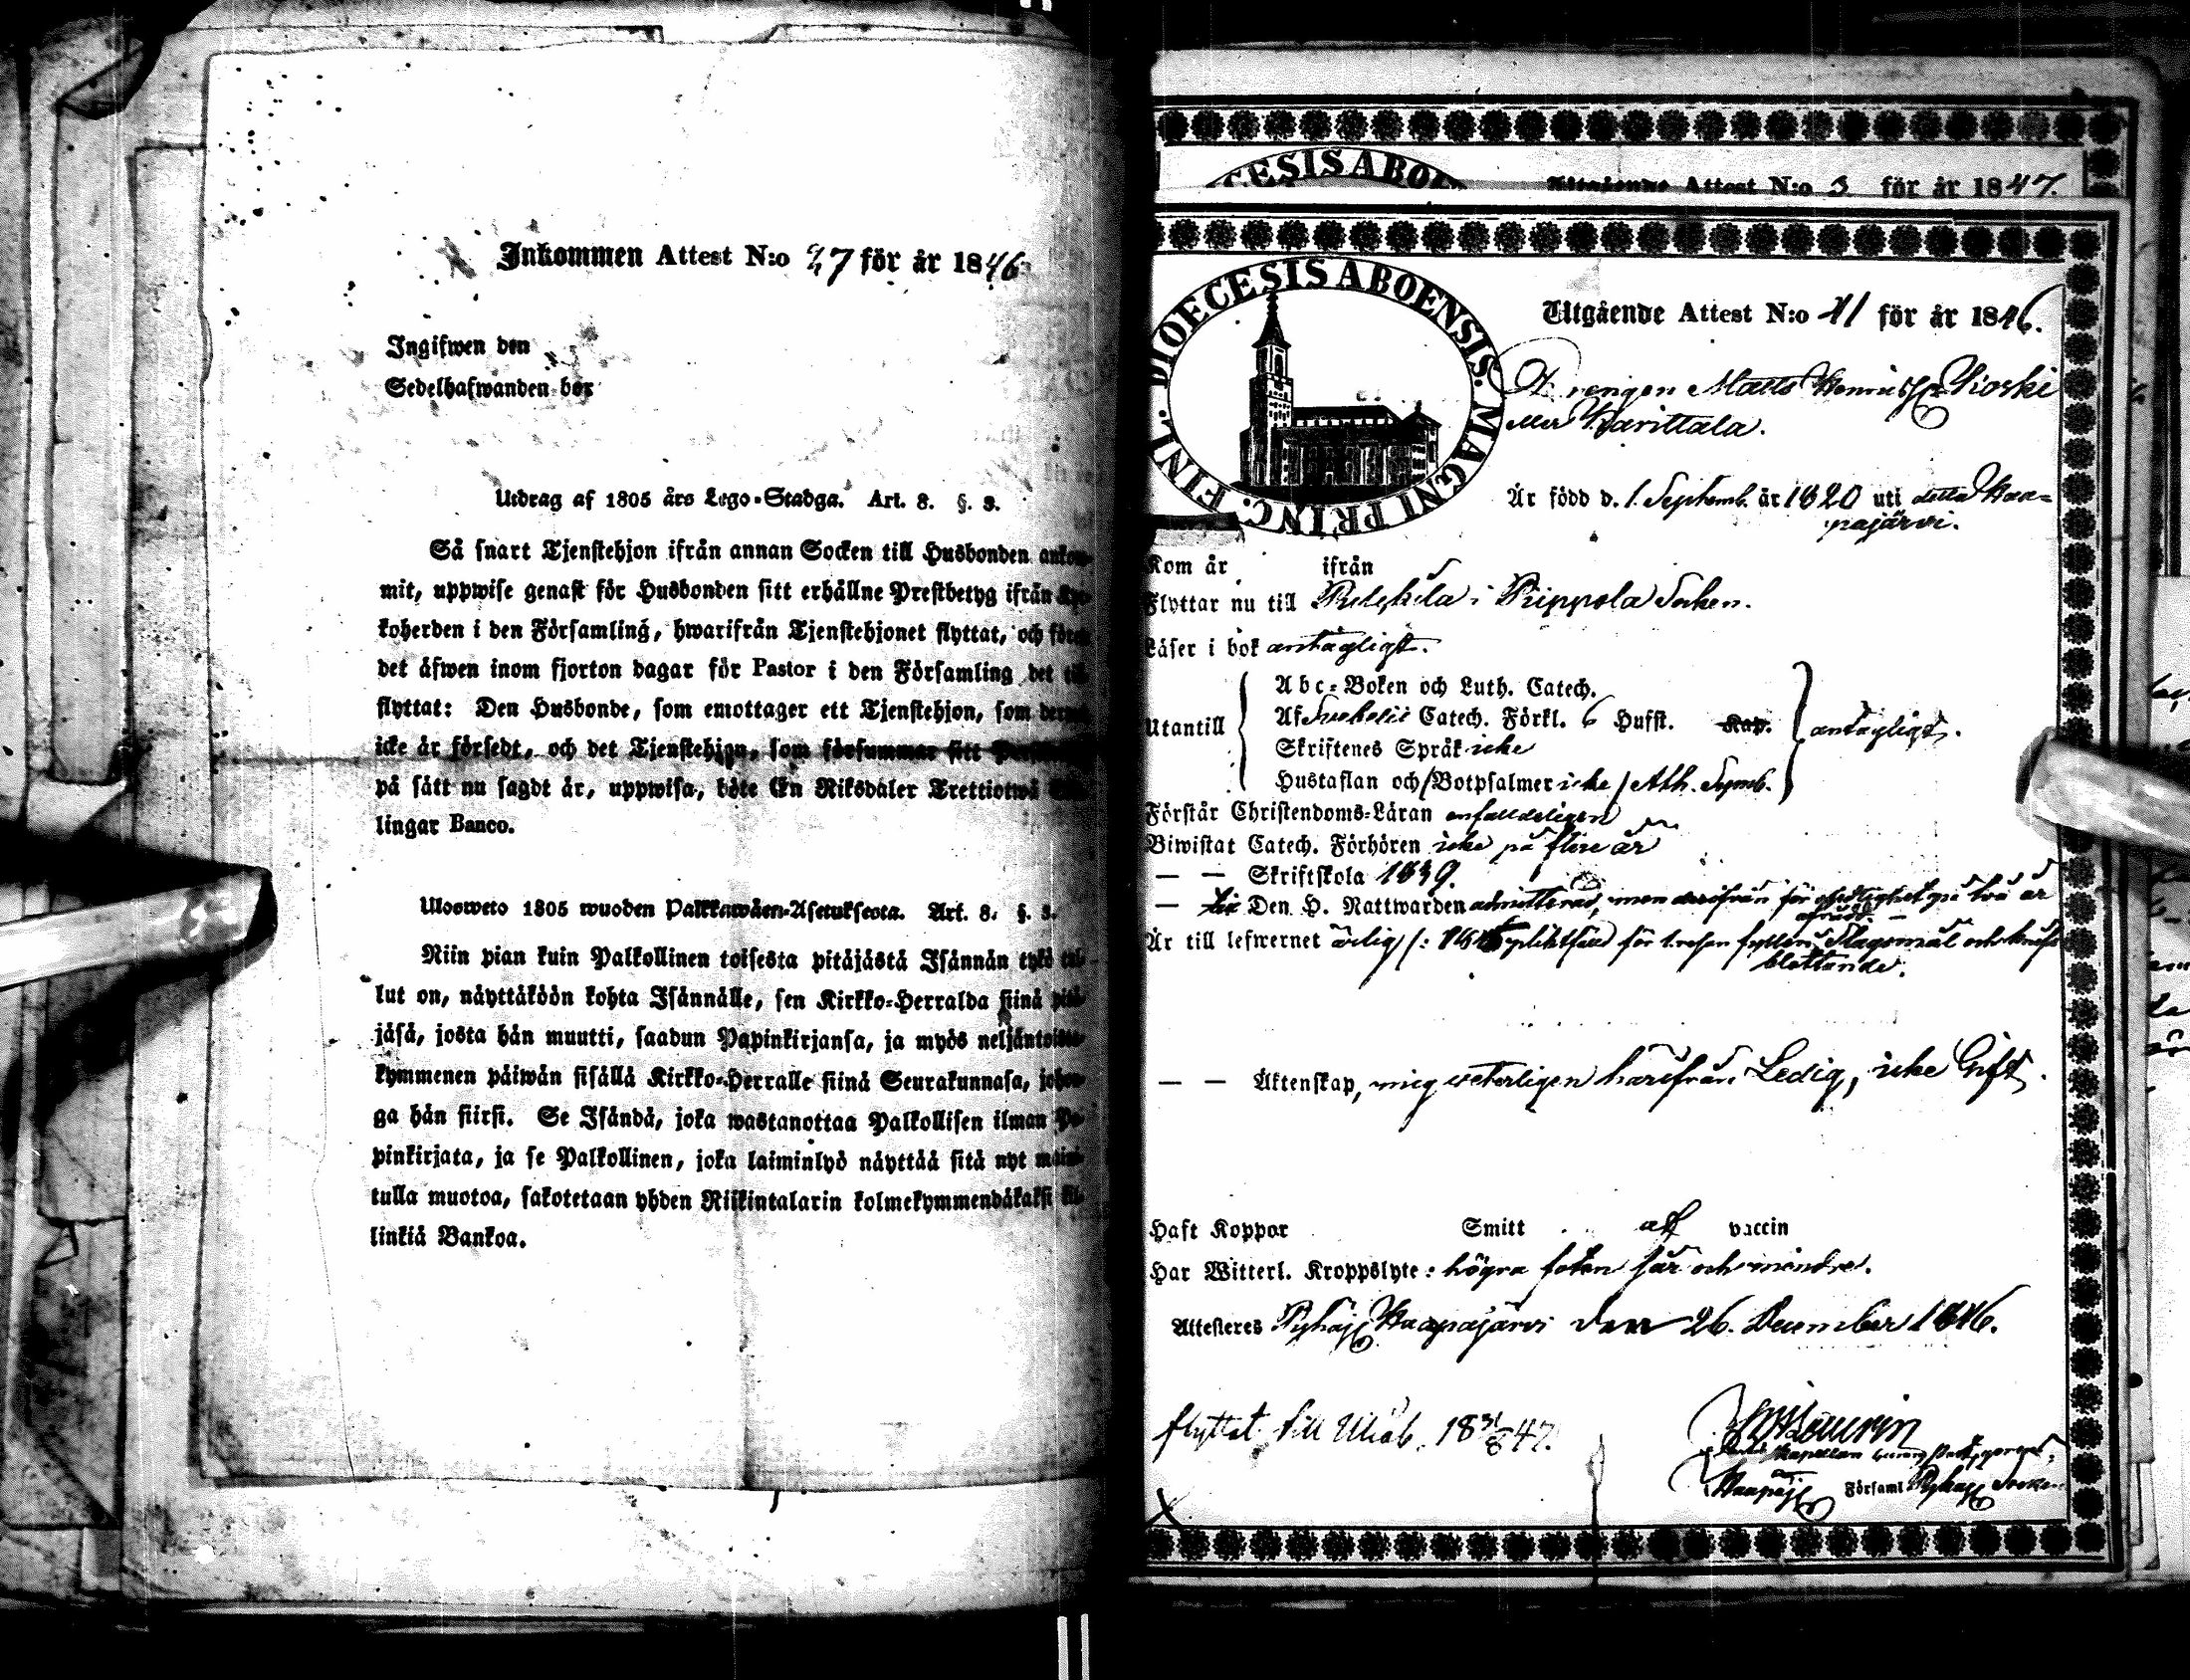 Inkommen Attest N:o 27 för år 1846
Ingifwen den
Sedelhafwanden bor
Utdrag af 1805 års Lego-Stadga. Art. 8. §. 3.
Så snart Tjenstehjon ifrån annan Socken till Husbonden ankom-
mit, uppwise genast för Husbonden sitt erhållne Prestbetyg ifrån
koherden i den Församling, hwarifrån Tjenstehjonet flyttat, och
det äfwen inom fjorton dagar för Pastor i den Församling det
flyttat: Den Husbonde, som emottager ett Tjenstehjon, som
icke är försedt, och det Tjenstehjon, som försummar sitt
på sätt nu sagdt är, uppwisa, böte En Riksdaler Trettiotwå
lingar Banco.
Ulosweto 1805 wuoden Palkkawäen-Asetuksesta. Art. 8. §. 3.
Niin pian kuin Palkollinen toisesta pitäjästä Isännän tykö tul-
lut on, näyttäköön kohta Isännälle, sen Kirkko-Herralda siinä pitä-
jäsä, josta hän muutti, saadun Papinkirjansa, ja myös neljäntoista-
kymmenen päiwän sisällä Kirkko-Herralle siinä Seurakunnasa, johon-
ga hän siirsi. Se Isändä, joka wastanottaa Palkollisen ilman Pa-
pinkirjata, ja se Palkollinen, joka laiminlyö näyttää sitä nyt mainit-
tulla muotoa, sakotetaan yhden Riikintalarin kolmekymmendäkaksi kil-
linkiä Bankoa.
CESIS ABOEN
Utgående Attest N:o 5 för år 1847.
DIOECESIS ABOENSIS. MAGNI PRINC. FINL.
Utgående Attest N:o 41 för år 1846.
Drengen Matts Henricss. Koski
eller Karittala.
Är född d. 1. Septemb. år 1820 uti detta Haa=
pajärvi.
Kom år ifrån
Flyttar nu till i Pippola Socken.
Läser i bok antagligt.
Utantill
Abc=Boken och Luth. Catech.
Af Svebelii Catech. Förkl. 6 Hufst. Kap.
Skriftenes Språk icke
Hustaflan och Botpsalmer icke / Ath. Symb.
antagligt.
Förstår Christendoms=Läran enfalldeligen
Biwistat Catech. Förhören icke på flere år
— — Skriftskola 1839.
— Den H. Nattwarden admitterad, men för på två år
Är till lefwernet ärlig för fylleri, Slagsmål och
— — Äktenskap, mig veterligen härifrån Ledig, icke Gift.
Haft Koppor Smitt af vaccin
Har Witterl. Kroppslyte: högra foten sår och mindre.
Attesteres Pyhäj. Haapajärvi den 26. December 1846.
flyttat till Uleåb. 18 31/8 47.
Haapaj. Församl Pyhäj. Socken